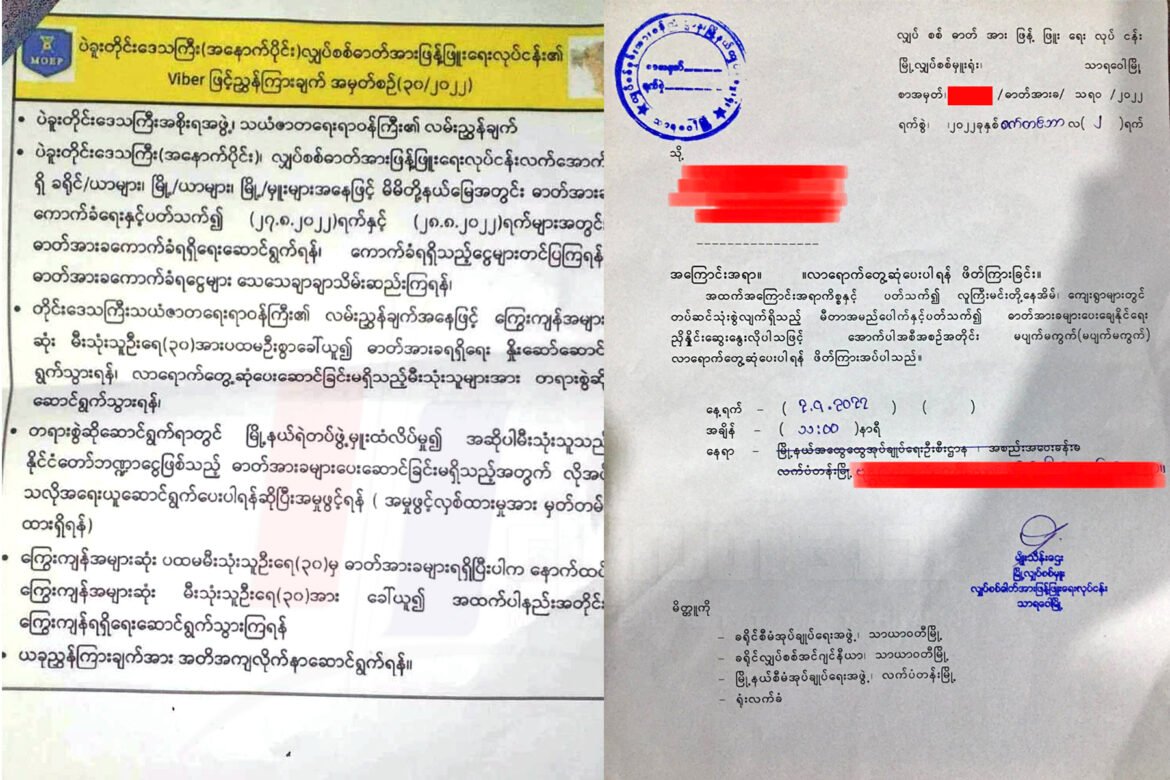 MOEP
ပဲခူးတိုင်းဒေသကြီး(အနောက်ပိုင်း)လျှပ်စစ်ဓာတ်အားဖြန့်ဖြူးရေးလုပ်ငန်း၏
Viber ဖြင့်ညွှန်ကြားချက် အမှတ်စဉ်(၃၀/၂၀၂၂)
• ပဲခူးတိုင်းဒေသကြီးအစိုးရအဖွဲ့၊ သယံဇာတရေးရာဝန်ကြီး၏ လမ်းညွှန်ချက်
• ပဲခူးတိုင်းဒေသကြီး(အနောက်ပိုင်း)၊ လျှပ်စစ်ဓာတ်အားဖြန့်ဖြူးရေးလုပ်ငန်းလက်အောက်
ရှိ ခရိုင်/ယာများ၊ မြို့/ယာများ၊ မြို့/မှူးများအနေဖြင့် မိမိတို့နယ်မြေအတွင်း ဓာတ်အားခ
ကောက်ခံရေးနှင့်ပတ်သက်၍ (၂၇.၈.၂၀၂၂)ရက်နှင့် (၂၈.၈.၂၀၂၂)ရက်များအတွင်း
ဓာတ်အားခကောက်ခံရရှိရေးဆောင်ရွက်ရန်၊ ကောက်ခံရရှိသည့်ငွေများတင်ပြကြရန်
ဓာတ်အားခကောက်ခံရငွေများ သေသေချာချာသိမ်းဆည်းကြရန်၊
• တိုင်းဒေသကြီးသယံဇာတရေးရာဝန်ကြီး၏ လမ်းညွှန်ချက်အနေဖြင့် ကြွေးကျန်အများ
ဆုံး မီးသုံးသူဦးရေ(၃၀)အားပထမဦးစွာခေါ်ယူ၍ ဓာတ်အားခရရှိရေး နှိုးဆော်ဆောင်
ရွက်သွားရန်၊ လာရောက်တွေ့ဆုံပေးဆောင်ခြင်းမရှိသည့်မီးသုံးသူများအား တရားစွဲဆို
ဆောင်ရွက်သွားရန်၊
• တရားစွဲဆိုဆောင်ရွက်ရာတွင် မြို့နယ်ရဲတပ်ဖွဲ့မှူးထံလိပ်မူ၍ အဆိုပါမီးသုံးသူသည်
နိုင်ငံတော်ဘဏ္ဍာငွေဖြစ်သည့် ဓာတ်အားခများပေးဆောင်ခြင်းမရှိသည့်အတွက် လိုအပ်
သလိုအရေးယူဆောင်ရွက်ပေးပါရန်ဆိုပြီးအမှုဖွင့်ရန် ( အမှုဖွင့်လှစ်ထားမှုအား မှတ်တမ်း
ထားရှိရန်)
• ကြွေးကျန်အများဆုံး ပထမမီးသုံးသူဦးရေ(၃၀)မှ ဓာတ်အားခများရရှိပြီးပါက နောက်ထပ်
ကြွေးကျန်အများဆုံး မီးသုံးသူဦးရေ(၃၀)အား ခေါ်ယူ၍ အထက်ပါနည်းအတိုင်း
ကြွေးကျန်ရရှိရေးဆောင်ရွက်သွားကြရန်
• ယခုညွှန်ကြားချက်အား အတိအကျလိုက်နာဆောင်ရွက်ရန်။
လျှပ် စစ် ဓာတ် အား ဖြန့် ဖြူး ရေး လုပ် ငန်း
မြို့လျှပ်စစ်မှူးရုံး၊ သာရဝေါမြို့
စာအမှတ်၊ /ဓာတ်အားခ/ သရ၀ /၂၀၂၂
ရက်စွဲ၊ ၂၀၂၂ခုနှစ်စက်တင်ဘာလ( ၂ )ရက်
သို့
အကြောင်းအရာ။ ။လာရောက်တွေ့ဆုံပေးပါရန် ဖိတ်ကြားခြင်း။
အထက်အကြောင်းအရာကိစ္စနှင့် ပတ်သက်၍ လူကြီးမင်းတို့နေအိမ်၊ ကျေးရွာများတွင်
တပ်ဆင်သုံးစွဲလျက်ရှိသည့် မီတာအမည်ပေါက်နှင့်ပတ်သက်၍ ဓာတ်အားခများပေးချေနိုင်ရေး
ညှိနှိုင်းဆွေးနွေးလိုပါသဖြင့် အောက်ပါအစီအစဉ်အတိုင်း မပျက်မကွက်(မပျက်မကွက်)
လာရောက်တွေ့ဆုံပေးပါရန် ဖိတ်ကြားအပ်ပါသည်။
နေ့ရက် – ( ၇.၉.၂၀၂၂ ) ( )
အချိန် – ( ၁၁:၀၀ )နာရီ
နေရာ – မြို့နယ်အထွေထွေအုပ်ချုပ်ရေးဦးစီးဌာန ၊ အစည်းအဝေးခန်းမ
လက်ပံတန်းမြို့
မျိုးသိန်းဌေး
မြို့လျှပ်စစ်မှူး
လျှပ်စစ်ဓါတ်အားဖြန့်ဖြူးရေးလုပ်ငန်း
သာရဝေါမြို့
မိတ္တူကို
– ခရိုင်စီမံအုပ်ချုပ်ရေးအဖွဲ့၊ သာယာဝတီမြို့
– ခရိုင်လျှပ်စစ်အင်ဂျင်နီယာ၊ သာယာဝတီမြို့
– မြို့နယ်စီမံအုပ်ချုပ်ရေးအဖွဲ့၊ လက်ပံတန်းမြို့
– ရုံးလက်ခံ